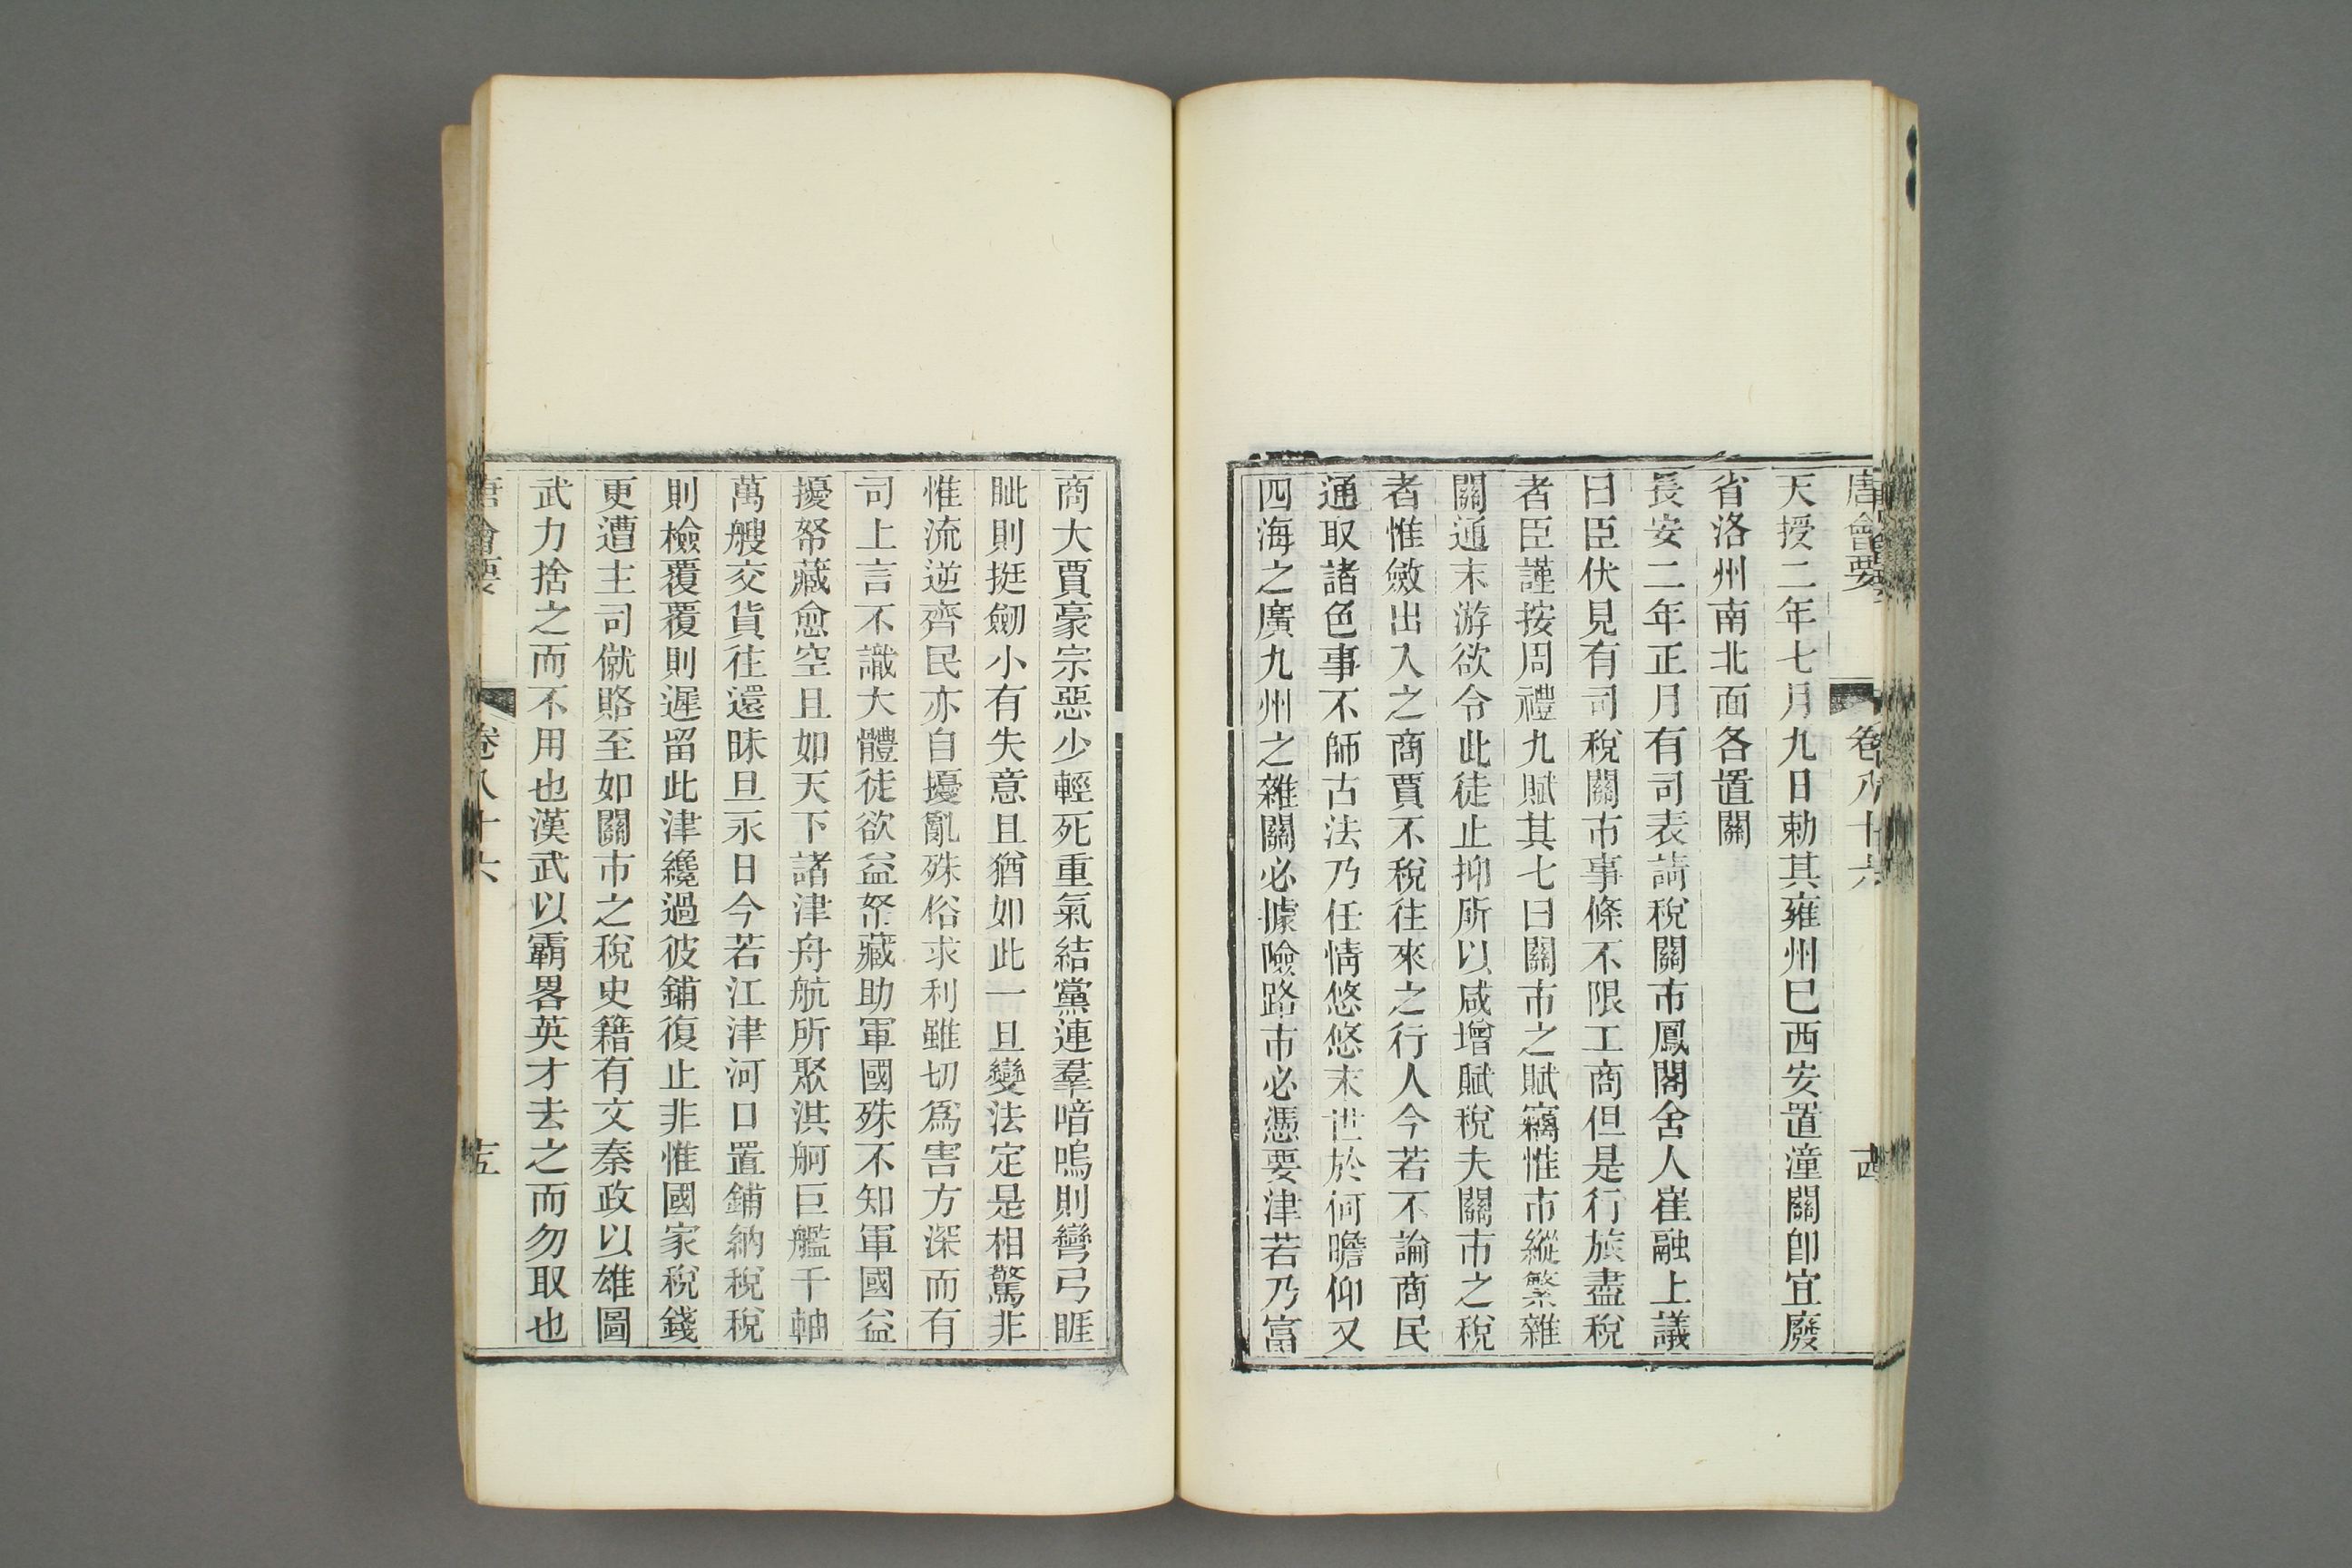 唐會要 卷八十六 西
天授二年七月九日勅其雍州巳西安置潼關卽宜廢
省洛州南北面各置關
長安二年正月有司表請稅關市鳳閣舍人崔融上議
曰臣伏見有司稅關市事條不限工商但是行旅盡稅
者臣謹按周禮九賦其七曰關市之賦竊惟市縱繁雜
關通末游欲令此徒止抑所以咸增賦稅夫關市之稅
者惟斂出入之商賈不稅往來之行人今若不論商民
通取諸色事不師古法乃任情悠悠末世於何瞻仰又
四海之廣九州之雜關必據險路市必憑要津若乃富
商大賈豪宗惡少輕死重氣結黨連羣喑嗚則彎弓睚
眦則挺劒小有失意且猶如此一旦變法定是相驚非
惟流逆齊民亦自擾亂殊俗求利雖切爲害方深而有
司上言不識大體徒欲益帑藏助軍國殊不知軍國益
擾帑藏愈空且如天下諸津舟航所聚淇舸巨艦千軸
萬艘交貨往還昧旦永日今若江津河口置鋪納稅稅
則檢覆覆則遲留此津纔過彼鋪復止非惟國家稅錢
更遭主司僦賂至如關市之稅史籍有文秦政以雄圖
武力捨之而不用也漢武以霸畧英才去之而勿取也
唐會要 卷八十六 十五